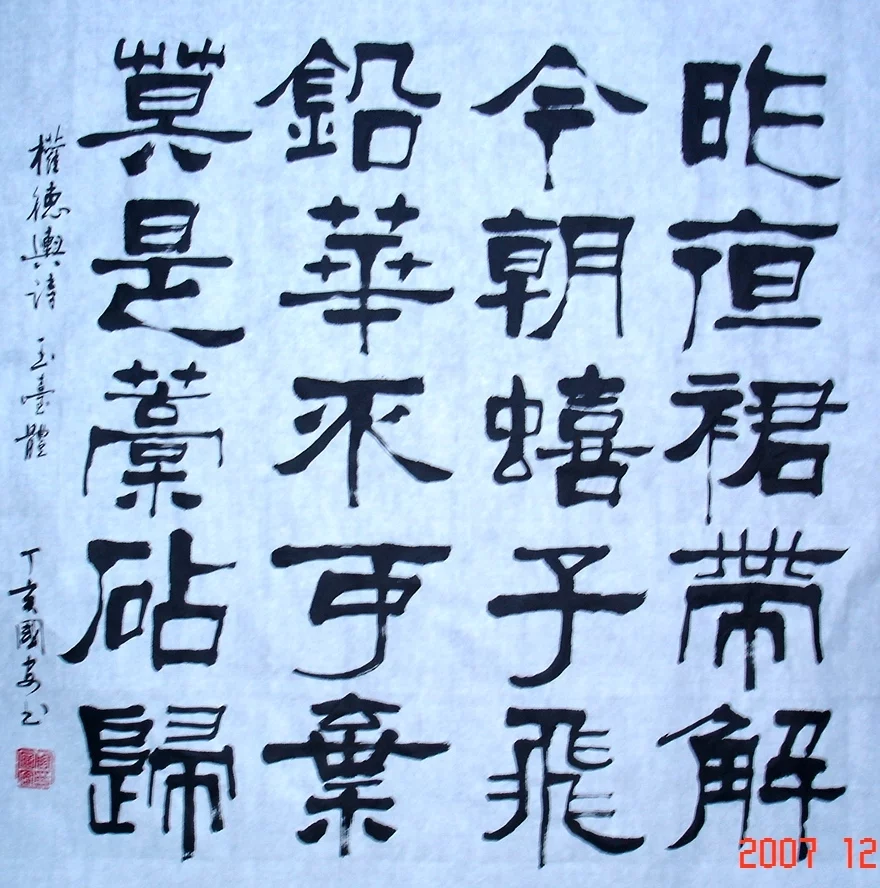 昨亱裙帶解
今朝蟢子飛
鉛華不可棄
莫是藁砧歸
權德輿詩 玉臺體 丁亥國安书
2007 12